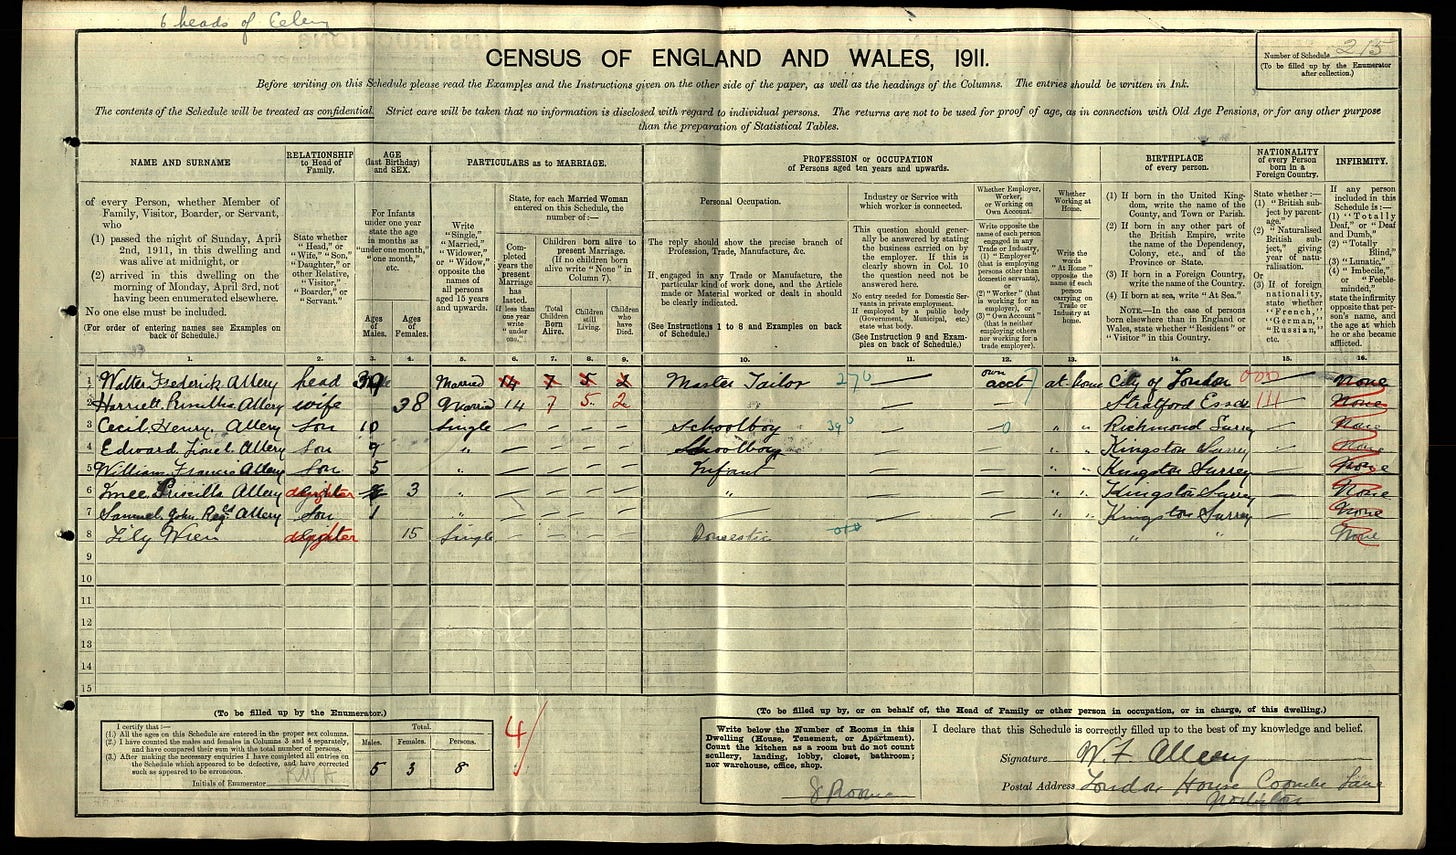 6 heads of
CENSUS OF ENGLAND AND WALES, 1911.
Number of Schedule 215
(To be filled up by the Enumerator after collection.)
Before writing on this Schedule please read the Examples and the Instructions given on the other side of the paper, as well as the headings of the Columns. The entries should be written in Ink.
The contents of the Schedule will be treated as confidential. Strict care will be taken that no information is disclosed with regard to individual persons. The returns are not to be used for proof of age, as in connection with Old Age Pensions, or for any other purpose
than the preparation of Statistical Tables.
NAME AND SURNAME
RELATIONSHIP to Head of Family.
AGE (last Birthday) and SEX.
PARTICULARS as to MARRIAGE.
PROFESSION or OCCUPATION of Persons aged ten years and upwards.
BIRTHPLACE of every person.
NATIONALITY of every Person born in a Foreign Country.
INFIRMITY.
of every Person, whether Member of Family, Visitor, Boarder, or Servant, who
(1) passed the night of Sunday, April 2nd, 1911, in this dwelling and was alive at midnight, or
(2) arrived in this dwelling on the morning of Monday, April 3rd, not having been enumerated elsewhere.
No one else must be included.
(For order of entering names see Examples on back of Schedule.)
State whether "Head," or "Wife," "Son," "Daughter," or other Relative, "Visitor," "Boarder," or "Servant."
For Infants under one year state the age in months as "under one month," "one month," etc.
Ages of Males.
Ages of Females.
Write "Single," "Married," "Widower," or "Widow," opposite the names of all persons aged 15 years and upwards.
State, for each Married Woman entered on this Schedule, the number of:—
Completed years the present Marriage has lasted. If less than one year write "under one."
Children born alive to present Marriage. (If no children born alive write "None" in Column 7).
Total Children Born Alive.
Children still Living.
Children who have Died.
Personal Occupation.
The reply should show the precise branch of Profession, Trade, Manufacture, &c.
If engaged in any Trade or Manufacture, the particular kind of work done, and the Article made or Material worked or dealt in should be clearly indicated.
(See Instructions 1 to 8 and Examples on back of Schedule.)
Industry or Service with which worker is connected.
This question should generally be answered by stating the business carried on by the employer. If this is clearly shown in Col. 10 the question need not be answered here.
No entry needed for Domestic Servants in private employment. If employed by a public body (Government, Municipal, etc.) state what body.
(See Instruction 9 and Examples on back of Schedule.)
Whether Employer, Worker, or Working on Own Account.
Write opposite the name of each person engaged in any Trade or Industry, (1) "Employer" (that is employing persons other than domestic servants), or (2) "Worker" (that is working for an employer), or (3) "Own Account" (that is neither employing others nor working for a trade employer).
Whether Working at Home.
Write the words "At Home" opposite the name of each person carrying on Trade or Industry at home.
(1) If born in the United Kingdom, write the name of the County, and Town or Parish.
(2) If born in any other part of the British Empire, write the name of the Dependency, Colony, etc., and of the Province or State.
(3) If born in a Foreign Country, write the name of the Country.
(4) If born at sea, write "At Sea."
NOTE.—In the case of persons born elsewhere than in England or Wales, state whether "Resident" or "Visitor" in this Country.
State whether:— (1) "British subject by parentage," (2) "Naturalised British subject," giving year of naturalisation. Or (3) If of foreign nationality, state whether "French," "German," "Russian," etc.
If any person included in this Schedule is:— (1) "Totally Deaf," or "Deaf and Dumb," (2) "Totally Blind," (3) "Lunatic," (4) "Imbecile," or "Feeble-minded," state the infirmity opposite that person's name, and the age at which he or she became afflicted.
1. 2. 3. 4. 5. 6. 7. 8. 9. 10. 11. 12. 13. 14. 15. 16.
1 Walter Frederick Allery head 39 Married 14 7 5 2 Master Tailor 270 — own acct at home City of London 000 — None
2 Harriett Priscilla Allery wife 38 Married 14 7 5 2 — — Stratford Essex 111 — None
3 Cecil Henry Allery Son 10 Single — — — — Schoolboy 390 — 0 " " Richmond Surrey — None
4 Edward Lionel Allery Son 9 " — — — — Schoolboy — — " " Kingston Surrey — None
5 William Francis Allery Son 5 " — — — — Infant — — " " Kingston Surrey — None
6 Priscilla Allery daughter 3 " — — — — " — — " " Kingston Surrey — None
7 Samuel John Regd Allery Son 1 " — — — — — — — " " Kingston Surrey — None
8 Lily Wren daughter 15 Single — — — — Domestic 010 " " None
9
10
11
12
13
14
15
(To be filled up by the Enumerator.)
I certify that:—
(1.) All the ages on this Schedule are entered in the proper sex columns.
(2.) I have counted the males and females in Columns 3 and 4 separately, and have compared their sum with the total number of persons.
(3.) After making the necessary enquiries I have completed all entries on the Schedule which appeared to be defective, and have corrected such as appeared to be erroneous.
Initials of Enumerator
Total.
Males. Females. Persons.
5 3 8
4
(To be filled up by, or on behalf of, the Head of Family or other person in occupation, or in charge, of this dwelling.)
Write below the Number of Rooms in this Dwelling (House, Tenement, or Apartment). Count the kitchen as a room but do not count scullery, landing, lobby, closet, bathroom; nor warehouse, office, shop.
8 Rooms
I declare that this Schedule is correctly filled up to the best of my knowledge and belief.
Signature W. F. Allery
Postal Address London House Coombe Lane
Norbiton